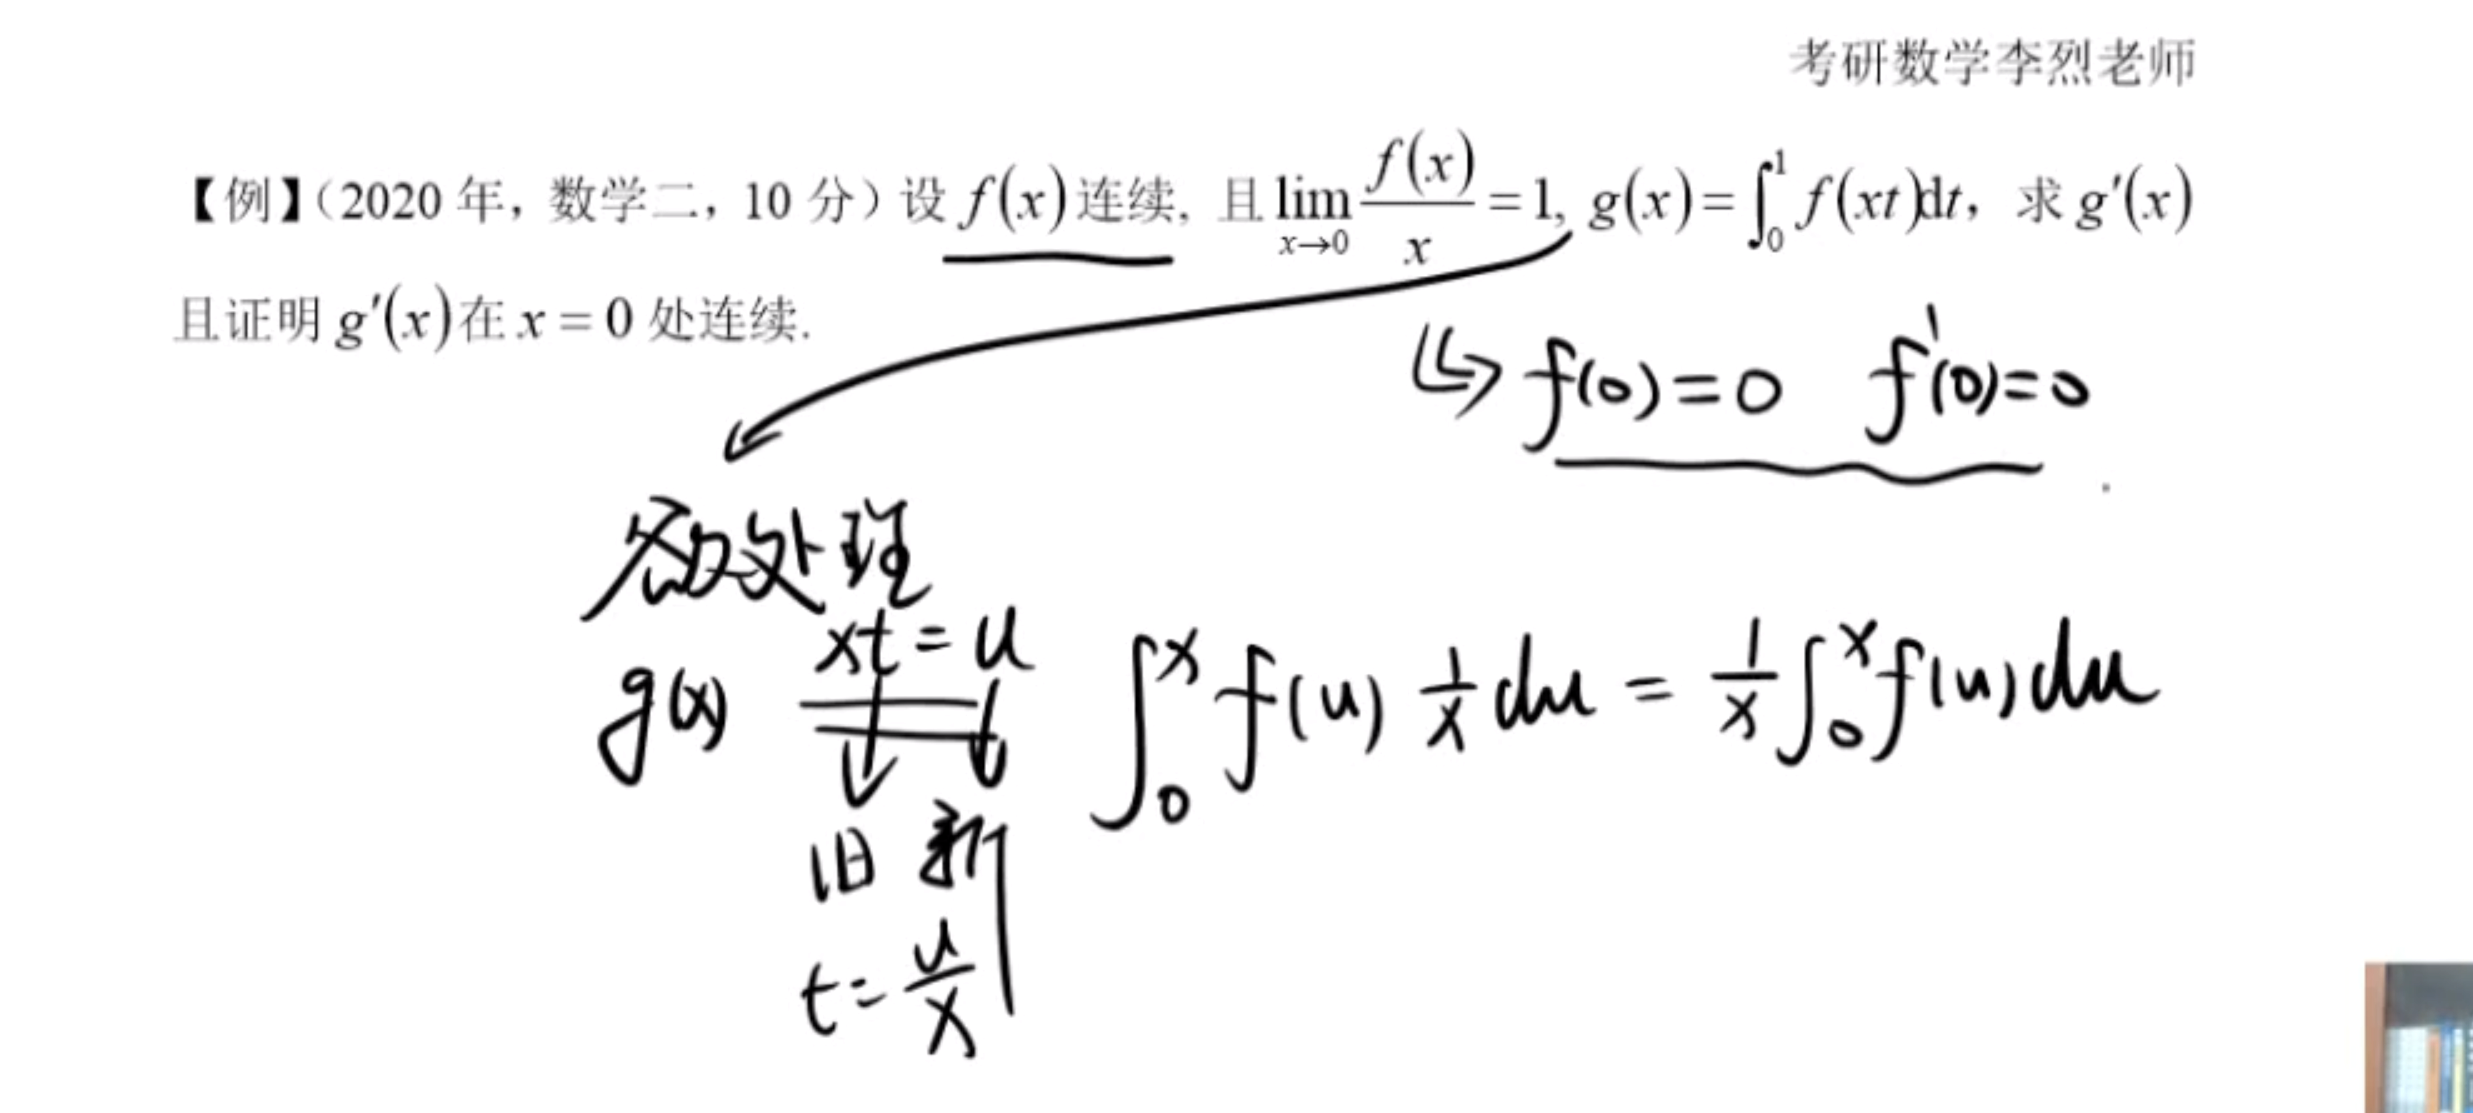 考研数学李烈老师
【例】（2020 年，数学二，10 分）设 f(x) 连续，且 lim_{x→0} f(x)/x = 1, g(x) = ∫_0^1 f(xt)dt，求 g′(x)
且证明 g′(x) 在 x = 0 处连续.
↳ f(0)=0 f′(0)=0
处理
g(x) xt=u ∫_0^x f(u) 1/x du = 1/x ∫_0^x f(u) du
旧 新
t=u/x